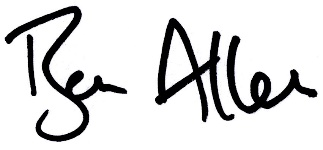 Ben Allen